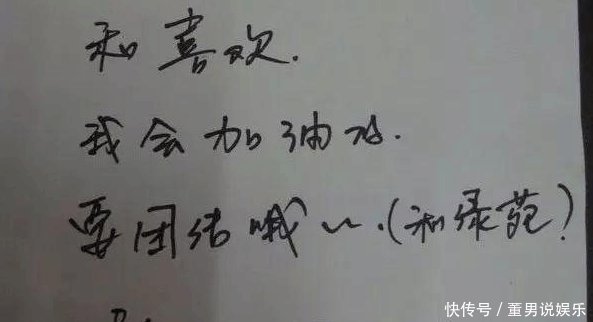 和喜欢.
我会加油哒.
要团结哦~.(和绿苑)
快传号/董男说娱乐